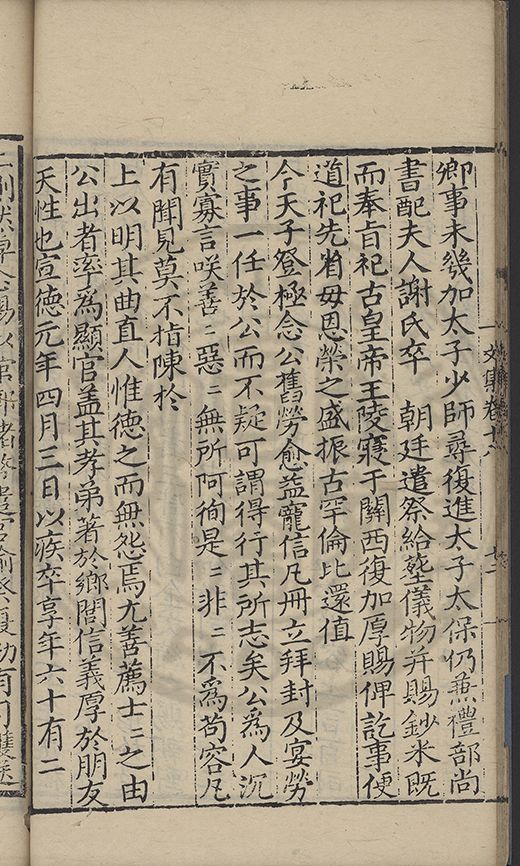 卿事未幾加太子少師尋復進太子太保仍兼禮部尚
書配夫人謝氏卒 朝廷遣祭給塟儀物并賜鈔米既
而奉旨祀古皇帝王陵寢于關西復加厚賜俾訖事便
道祀先省毋恩榮之盛振古罕倫比還值
今天子登極念公舊勞愈益寵信凡冊立拜封及宴勞
之事一任於公而不疑可謂得行其所志矣公為人沉
實寡言咲善〻惡〻無所阿徇是〻非〻不為苟容凡
有聞見莫不指陳於
上以明其曲直人惟德之而無怨焉尤善薦士〻之由
公出者率為顯官盖其孝弟著於鄉閭信義厚於朋友
天性也宣德元年四月三日以疾卒享年六十有二
文集卷十八